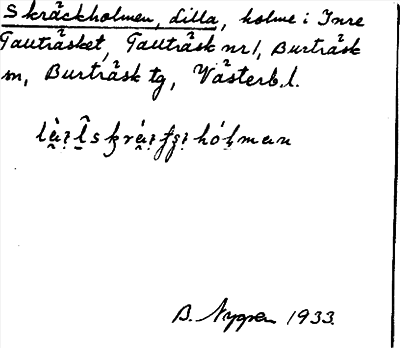 Skräckholmen, Lilla, holme i Inre
Gauträsket, Gauträsk nr 1, Burträsk
sn, Burträsk tg, Västerb. l.
B. Nygren 1933.